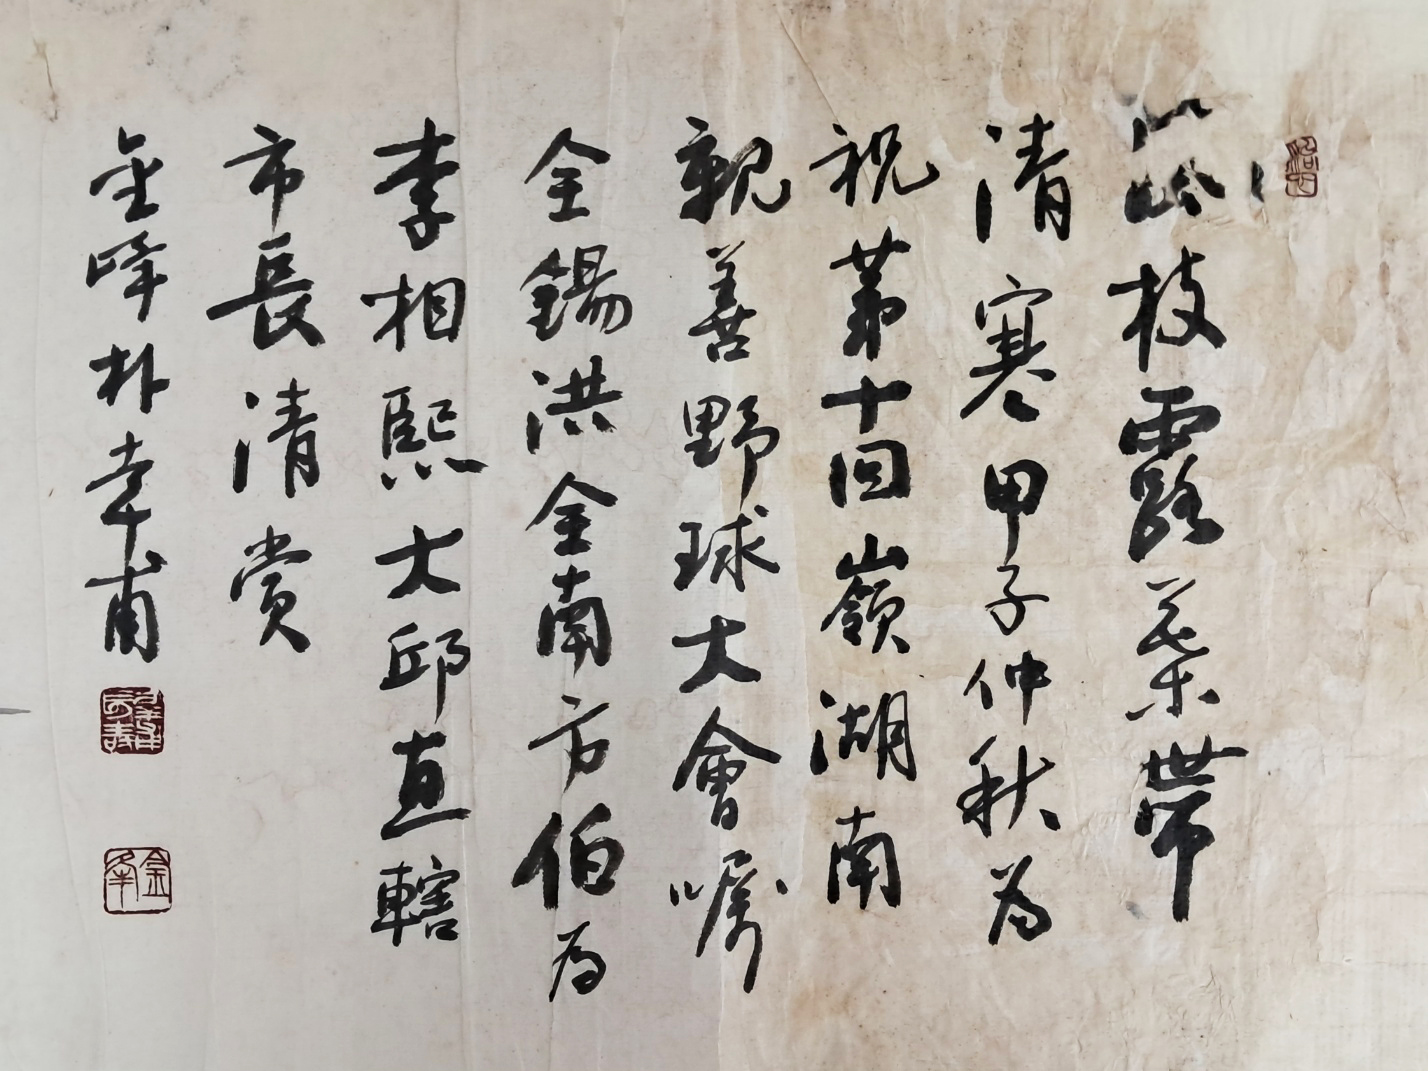 枝露葉帶
清寒甲子仲秋為
祝第十回嶺湖南
親善野球大會囑
全錫洪全南方伯為
李相熙大邱直轄
市長清賞
金峰朴幸甫